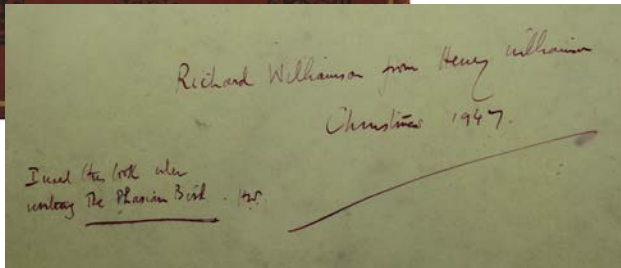 Richard Williamson from Henry Williamson
Christmas 1947.
I used this book when
writing The Phasian Bird. HW.